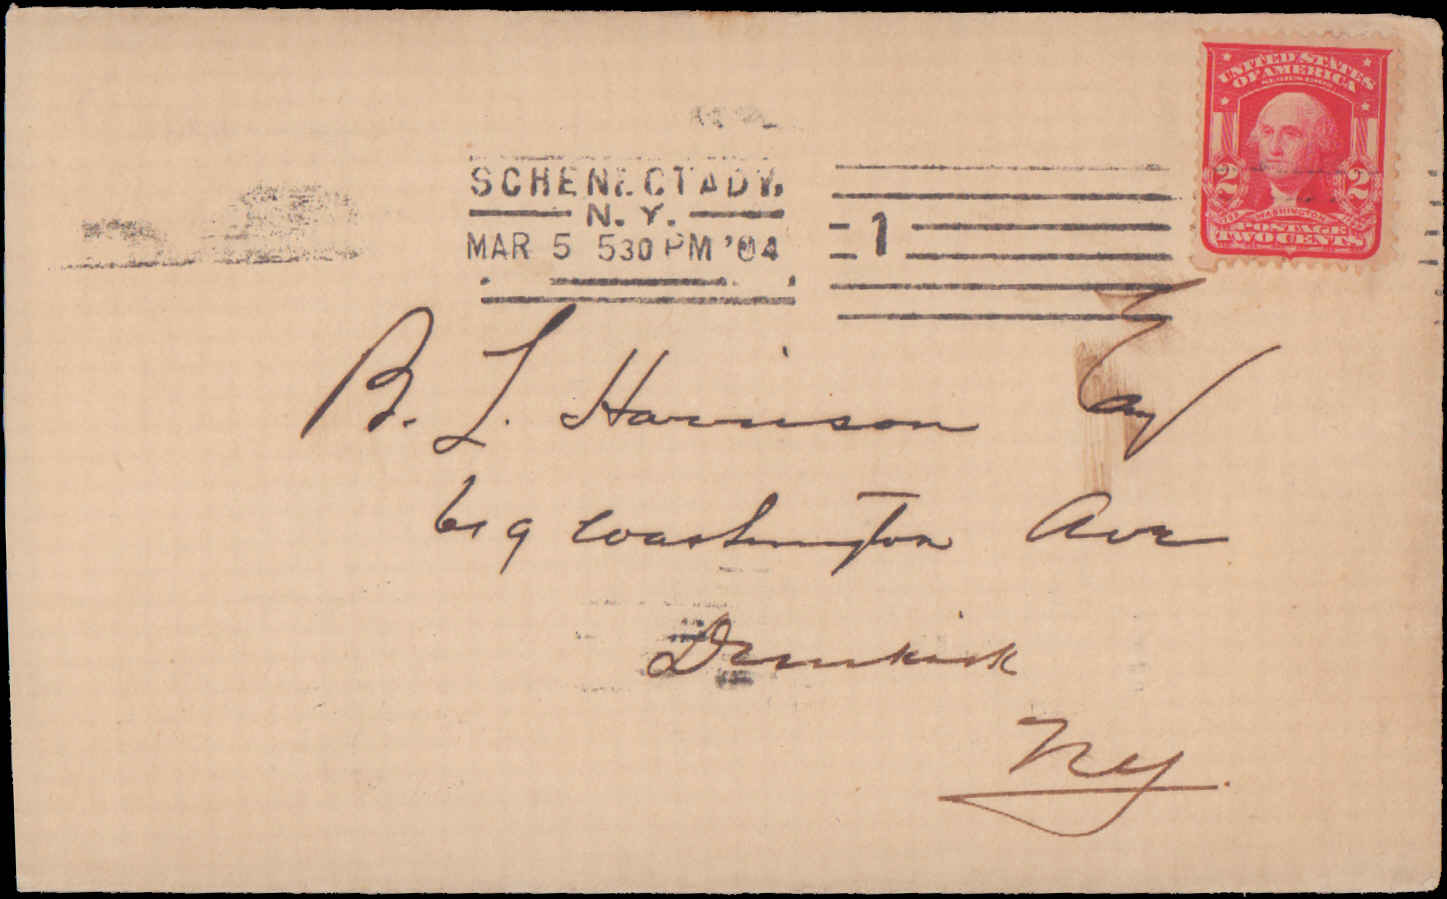 UNITED STATES
OF AMERICA
SERIES 1902
2 2
WASHINGTON
POSTAGE
TWO CENTS
SCHENECTADY,
N. Y.
MAR 5 530 PM '04
1
B. L. Harrison Esq
619 Washington Ave
Dunkirk
NY.